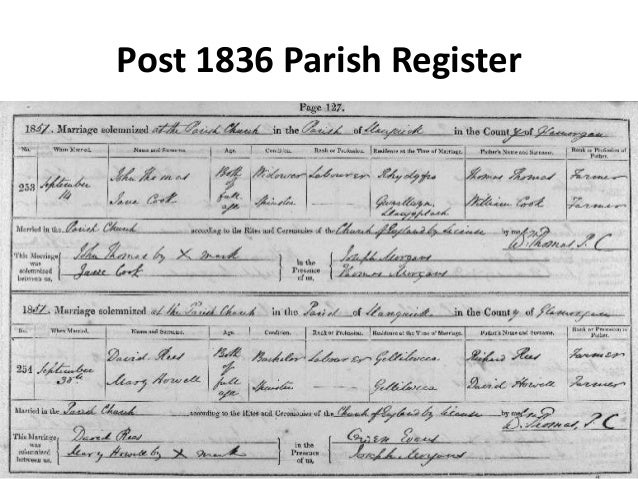 Post 1836 Parish Register
Page 127.
1857. Marriage solemnized at the Parish Church in the Parish of in the County of Glamorgan
No. When Married. Name and Surname. Age. Condition. Rank or Profession. Residence at the Time of Marriage. Father's Name and Surname. Rank or Profession of Father.
253 September 14 John Thomas Both of full age Widower Labourer Rhydgfro Thomas Thomas Farmer
Jane Cook Spinster — William Cook Farmer
Married in the Parish Church according to the Rites and Ceremonies of the Church of England by Licence by me,
W. Thomas, P. C
This Marriage was solemnized between us, John Thomas by X mark in the Presence of us, Joseph Morgans
Jane Cook Thomas Morgans
1857. Marriage solemnized at the Parish Church in the Parish of in the County of Glamorgan
No. When Married. Name and Surname. Age. Condition. Rank or Profession. Residence at the Time of Marriage. Father's Name and Surname. Rank or Profession of Father.
254 September 30th David Rees Both of full age Bachelor Labourer Gellilwcca Richard Rees Farmer
Mary Howell Spinster Gellilwcca David Howell Farmer
Married in the Parish Church according to the Rites and Ceremonies of the Church of England by Licence by me,
W. Thomas, P. C
This Marriage was solemnized between us, David Rees in the Presence of us, Evans
Mary Howell by X mark Joseph Morgans